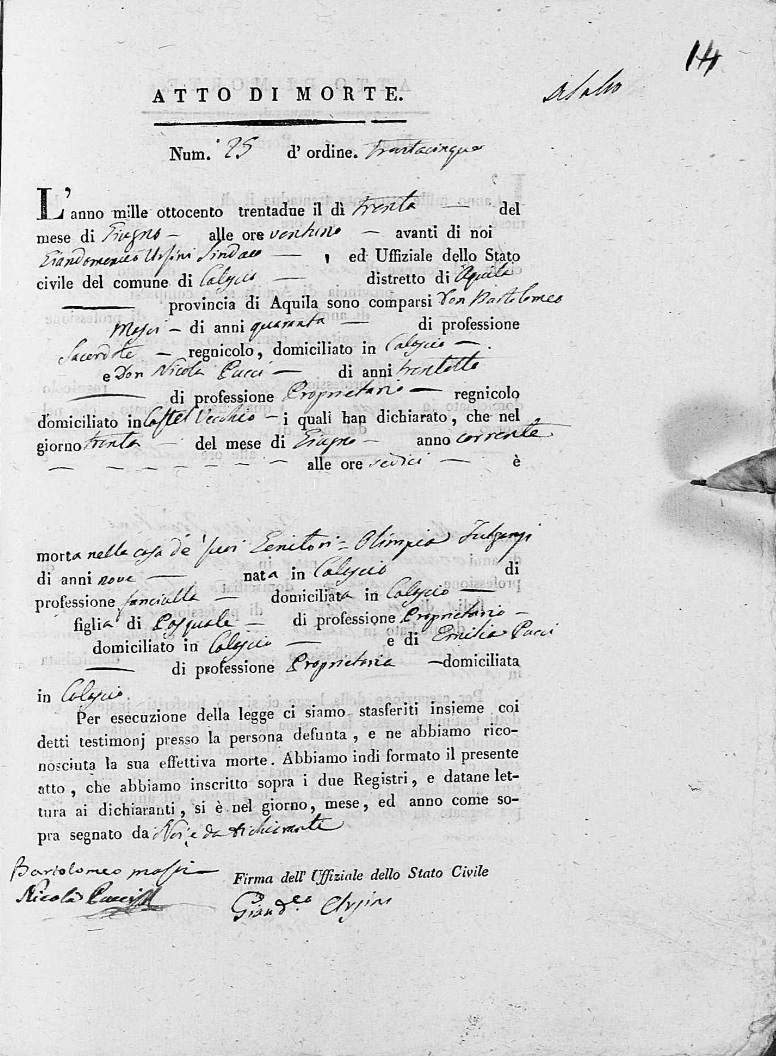 14
ATTO DI MORTE.
Num. 25 d' ordine. Trentacinque
L'anno mille ottocento trentadue il dì trenta — del
mese di Giugno — alle ore ventuno — avanti di noi
Giandomenico Ursini Sindaco — , ed Uffiziale dello Stato
civile del comune di Calascio — distretto di Aquila
— provincia di Aquila sono comparsi Don Bartolomeo
— di anni quaranta — di professione
Sacerdote — regnicolo, domiciliato in Calascio — .
e Don Nicola Pucci — di anni trentotto
— di professione Proprietario — regnicolo
domiciliato in Castel Vecchio — i quali han dichiarato, che nel
giorno trenta — del mese di Giugno — anno corrente
— — — — — — — alle ore sedici — è
morta nella casa de' suoi Genitori — Olimpia
di anni nove — nata in Calascio di
professione fanciulla — domiciliata in Calascio —
figlia di Pasquale — di professione Proprietario —
domiciliato in Calascio — e di Emilia Pucci
— di professione Proprietaria — domiciliata
in Calascio.
Per esecuzione della legge ci siamo stasferiti insieme coi
detti testimonj presso la persona defunta, e ne abbiamo rico-
nosciuta la sua effettiva morte. Abbiamo indi formato il presente
atto, che abbiamo inscritto sopra i due Registri, e datane let-
tura ai dichiaranti, si è nel giorno, mese, ed anno come so-
pra segnato da Noi e da dichiarante
Bartolomeo
Nicola Pucci
Firma dell' Uffiziale dello Stato Civile
Giand.co Ursini